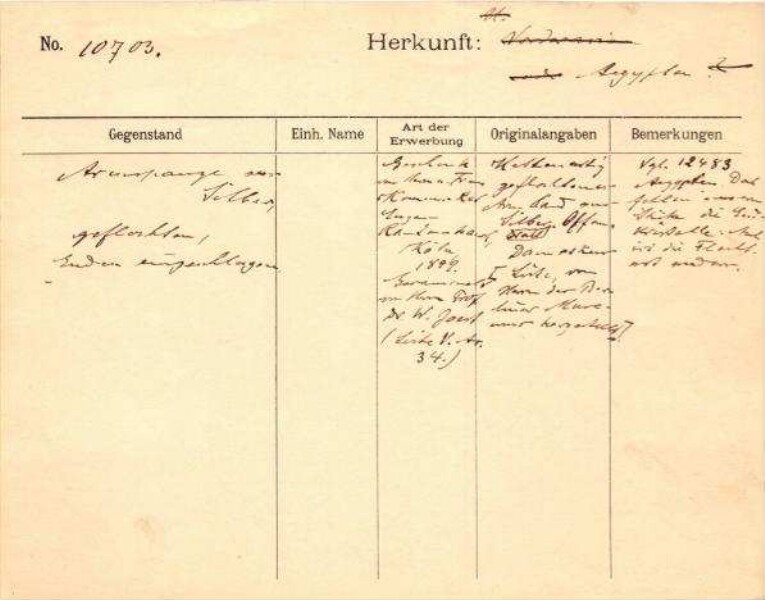 No. 10703.
Herkunft: Vorderasien
oder Aegypten ?
Gegenstand
Einh. Name
Art der
Erwerbung
Originalangaben
Bemerkungen
Armspange von
Silber,
geflochten,
Enden eingeschlagen
Geschenk
von Frau
Kommerz.
Eugen
Rautenstrauch,
Köln
1899.
Gesammelt
von Herrn Prof.
Dr. W. Joest
(Liste V. Nr.
34.)
Kettenartig
geflochtenes
Armband aus
Silber. Offen.
Damaskus
Liste, von
Herrn der Ber-
liner Muse-
ums hergestellt]
Vgl. 12483
Aegypten. Dort
fehlen
Stücke die
ist die Flecht-
art anders.